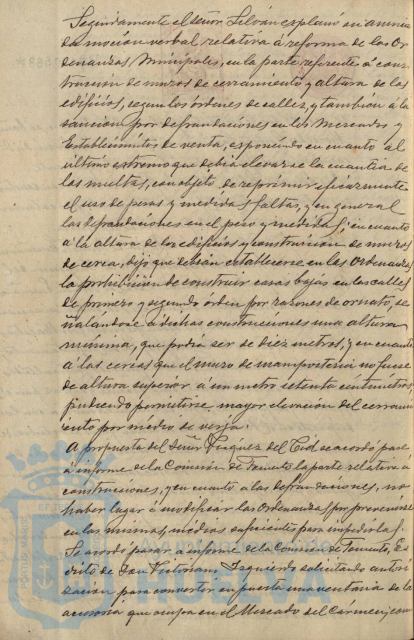 Seguidamente el señor Silván explanó su anuncia
da moción verbal relativa á reforma de las Or
denanzas Municipales, en la parte referente á cons
trucción de muros de cerramiento y altura de los
edificios, segun los órdenes de calles, y tambien á la
sancion por defraudaciones en los Mercados y
Establecimientos de venta, exponiendo en cuanto al
último extremo que debia elevarse la cuantia de
las multas, con objeto de reprimir eficazmente
el uso de pesas y medidas faltas, y en general
las defraudaciones en el peso y medida; y en cuanto
á la altura de los edificios y construcción de muros
de cerca, dijo que debian establecerse en las Ordenanzas
la prohibición de construir casas bajas en las calles
de primero y segundo órden por razones de ornato, se
ñalándose á dichas construcciones una altura
mínima, que podria ser de diez metros, y en cuanto
á las cercas que el muro de mamposteria no fuese
de altura superior á un metro setenta centímetros,
pudiendo permitirse mayor elevación del cerrami
ento por medio de verja.
A propuesta del Señor Vazquez del Cid se acordó pase
á informe de la Comisión de Fomento la parte relativa á
construcciones, y en cuanto á las defraudaciones, no
haber lugar á modificar las Ordenanzas por prevenirse
en las mismas, medios suficientes para impedirlas.
Se acordó pasar á informe de la Comisión de Fomento, Es
crito de Don Victoriano Izquierdo solicitando autori
zación para convertir en puerta una ventana de la
accesoria que ocupa en el Mercado del Carmen; con